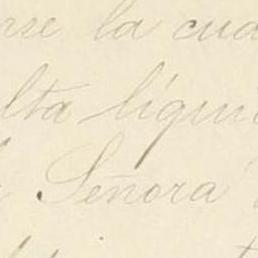 rse la cua
lta líqui
Señora